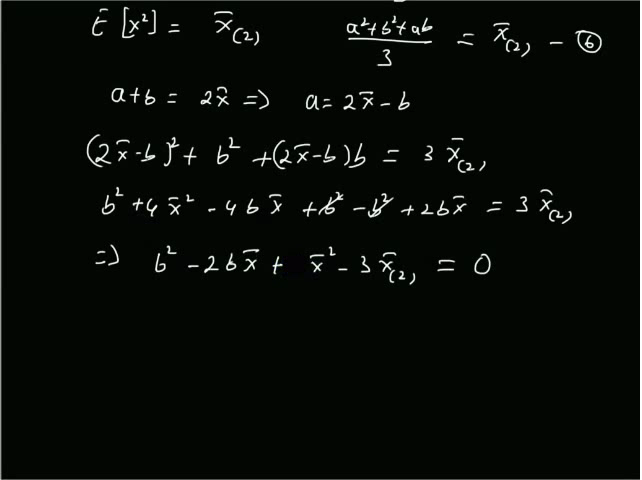 E [x²] = x̄₍₂₎    (a²+b²+ab)/3 = x̄₍₂₎ – ⑥
a+b = 2x̄ => a = 2x̄ – b
(2x̄–b)² + b² + (2x̄–b)b = 3 x̄₍₂₎
b² + 4x̄² – 4bx̄ + b² – b² + 2bx̄ = 3 x̄₍₂₎
=> b² – 2bx̄ + x̄² – 3x̄₍₂₎ = 0